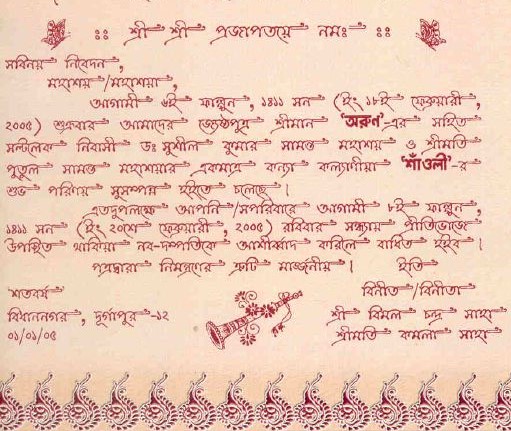 শ্রী শ্রী প্রজাপতয়ে নমঃ
সবিনয় নিবেদন,
মহাশয়/মহাশয়া,
আগামী ৬ই ফাল্গুন, ১৪১১ সন (ইং ১৮ই ফেব্রুয়ারী,
২০০৫) শুক্রবার আমাদের জ্যেষ্ঠপুত্র শ্রীমান 'অরুণ'-এর সহিত
সল্টলেক নিবাসী ডঃ সুশীল কুমার সামন্ত মহাশয় ও শ্রীমতি
পুতুল সামন্ত মহাশয়ার একমাত্র কন্যা কল্যাণীয়া 'শাঁওলী'-র
শুভ পরিণয় সুসম্পন্ন হইতে চলেছে।
এতদুপলক্ষে আপনি/সপরিবারে আগামী ৮ই ফাল্গুন,
১৪১১ সন (ইং ২০শে ফেব্রুয়ারী, ২০০৫) রবিবার সন্ধ্যায় প্রীতিভোজে
উপস্থিত থাকিয়া নব-দম্পতিকে আশীর্ব্বাদ করিলে বাধিত হইব।
পত্রদ্বারা নিমন্ত্রণের ত্রুটি মার্জ্জনীয়। ইতি
বিনীত/বিনীতা
শ্রী বিমল চন্দ্র সাহা
শ্রীমতি কমলা সাহা
শতবর্ষ
বিধাননগর, দূর্গাপুর-১২
০১/০১/০৫